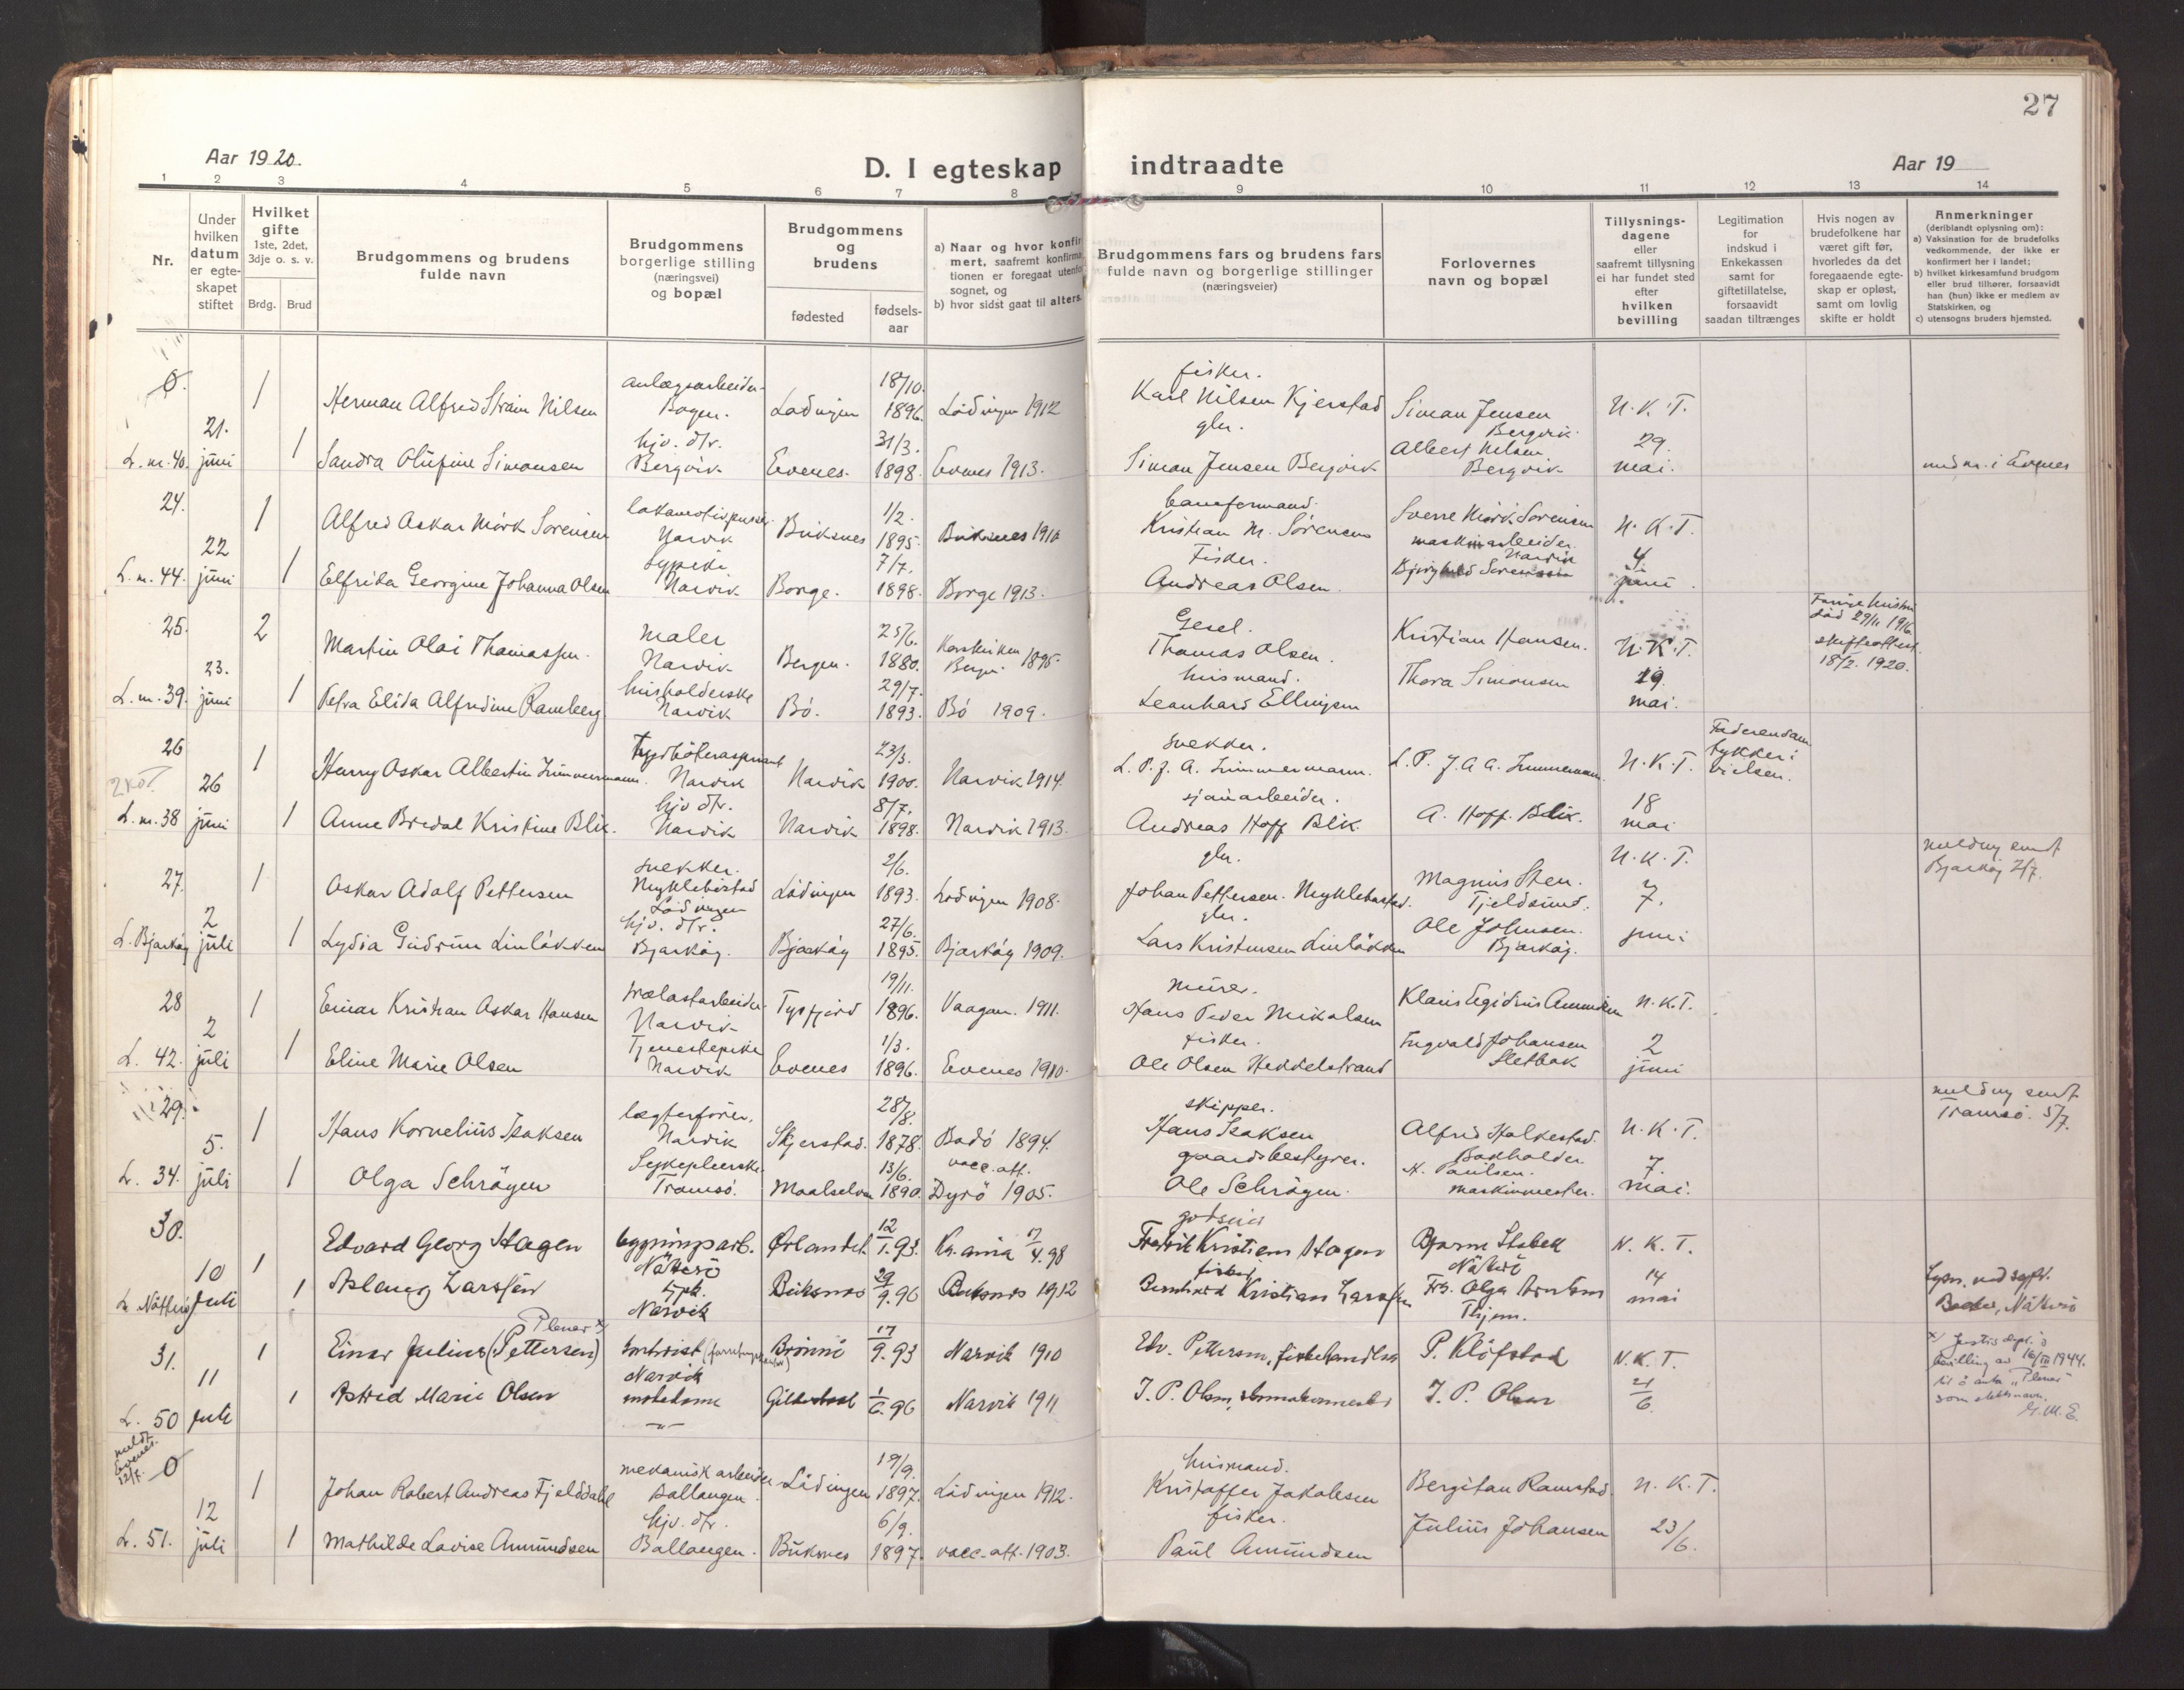 27
Aar 1920.
D. I egteskap indtraadte
Aar 19
1 2 3 4 5 6 7 8 9 10 11 12 13 14
Nr.
Under hvilken datum er egteskapet stiftet
Hvilket gifte 1ste, 2det, 3dje o. s. v.
Brdg. Brud
Brudgommens og brudens fulde navn
Brudgommens borgerlige stilling (næringsvei) og bopæl
Brudgommens og brudens
fødested
fødselsaar
a) Naar og hvor konfir
mert, saafremt konfirma
tionen er foregaat utenfor
sognet, og
b) hvor sidst gaat til alters.
Brudgommens fars og brudens fars fulde navn og borgerlige stillinger (næringsveier)
Forlovernes navn og bopæl
Tillysningsdagene eller saafremt tillysning ei har fundet sted efter hvilken bevilling
Legitimation for indskud i Enkekassen samt for giftetillatelse, forsaavidt saadan tiltrænges
Hvis nogen av brudefolkene har været gift før, hvorledes da det foregaaende egteskap er opløst, samt om lovlig skifte er holdt
Anmerkninger
(deriblandt oplysning om):
a) Vaksination for de brudefolks vedkommende, der ikke er konfirmert her i landet;
b) hvilket kirkesamfund brudgom eller brud tilhører, forsaavidt han (hun) ikke er medlem av Statskirken, og
c) utensogns bruders hjemsted.
0. 1 Herman Alfred Strøm Nilsen anlægsarbeider Bogen. Lødingen 18/10. 1896. Lødingen 1912 fisker. Karl Nilsen Kjerstad Simon Jensen Bergvik N. K. T.
L. nr. 40. 21. juni 1 Sandra Olufine Simonsen hjv. dtr. Bergvik Evenes. 31/3. 1898. Evenes 1913. gbr. Simon Jensen Bergvik Albert Nilsen Bergvik 29. mai.
24. 1 Alfred Oskar Mörk Sörensen lokomotivpusser Narvik Buksnes 1/2. 1895. Buksnes 1910 baneformand. Kristian M. Sörensen Sverre Mörk Sörensen maskinarbeider. Narvik N. K. T.
L. nr. 44. 22 juni 1 Elfrida Georgine Johanna Olsen Narvik Borge. 7/7. 1898. Borge 1913. Fisker. Andreas Olsen. 4. juni
25. 2 Martin Olai Thomassen. maler Narvik Bergen. 25/6. 1880. Korskirken Bergen 1895. Thomas Olsen. Kristian Hansen. N. K. T. 18/2. 1920.
L. nr. 39. 23. juni 1 Petra Elida Alfredine Ramberg husholderske Narvik Bö. 29/7. 1893. Bö 1909. husmand. Leonhard Ellingsen Thora Simonsen 19. mai.
26 1 Harry Oskar Albertin Zimmermann. Narvik Narvik 23/3. 1900. Narvik 1914. snekker. L. P. J. A. Zimmermann. L. P. J. A. A. Zimmermann. N. K. T.
L. nr. 38 26 juni 1 Anne Bredal Kristine Blix. hjv dtr. Narvik Narvik 8/7. 1898. Narvik 1913. sjauarbeider. Andreas Hoff Blix. A. Hoff. Blix. 18 mai
27. 1 Oskar Adolf Pettersen snekker. Myklebostad Lödingen Lödingen 2/6. 1893. Lödingen 1908. gbr. Johan Pettersen. Myklebostad. Magnus Sten. Tjeldsund. N. K. T. 7. melding sendt Bjarköy 2/7.
L. Bjarköy 2 juli 1 Lydia Gudrun Linlökken hjv. dtr. Bjarköy. Bjarköy 27/6. 1895. Bjarköy 1909. gbr. Lars Kristensen Linlökken Ole Johnsen. Bjarköy. juni
28 1 Einar Kristian Oskar Hansen Narvik Tysfjord 19/11. 1896. Vaagan. 1911. murer. Hans Peder Mikalsen Klaus Egidius Amundsen N. K. T.
L. 42. 2 juli 1 Eline Marie Olsen Tjenestepike Narvik Evenes 1/3. 1896. Evenes 1910. fisker. Ole Olsen Heddelstrand Ingvald Johansen Sletbak 2 juni
29. 1 Hans Kornelius Isaksen lægterförer. Narvik Skjerstad. 28/8. 1878. Bodö 1894. skipper. Hans Isaksen Alfred Halkestad. Bokholder N. K. T. melding sendt Tromsö. 5/7.
L. 34. 5. juli 1 Olga Schrögen Sykepleierske. Tromsö. Maalselven 13/6. 1890. vacc. att. Dyrö 1905. gaardsbestyrer. Ole Schrögen. N. Paulsen. maskinmester. 7. mai.
30. 1 Edvard Georg Hagen bygningsarb. Nötterö Ørlandet 12/1. 93. Kr. ania 4. 98 godseier Fredrik Kristian Hagen Bjarne Stabek Nötterö N. K. T.
L. Nötterö 10 Juli 1 Aslaug Larssen Narvik Buksnes 29/9. 96 Buksnes 1912 fisker Bernhard Kristian Larssen Fr. Olga 14 mai
31. 1 Einar Julius (Pettersen) Plener x) Narvik Brönnö 17/9. 93 Narvik 1910 Edv. Pettersen, fiskehandler P. Klöfstad N. K. T. x) Justisdept.s bevilling av 16/III 1944. til å anta "Plener" som slektsnavn. G. M. E.
L. 50 11 Juli 1 Astrid Marie Olsen motedame 1/6. 96 Narvik 1911 J. P. Olsen, skomakermester J. P. Olsen 21/6.
meldt Evenes. 12/7. 0 1 Johan Robert Andreas Fjelddahl mekanisk arbeider Ballangen. Lödingen 19/9. 1897. Lödingen 1912. husmand. Kristoffer Jakobsen Bergitan Ramstad. N. K. T.
L. 51. 12 juli 1 Mathilde Lovise Amundsen hjv. dtr. Ballangen. Buksnes 6/9. 1897. vacc. att. 1903. fisker. Paul Amundsen Julius Johansen 23/6.